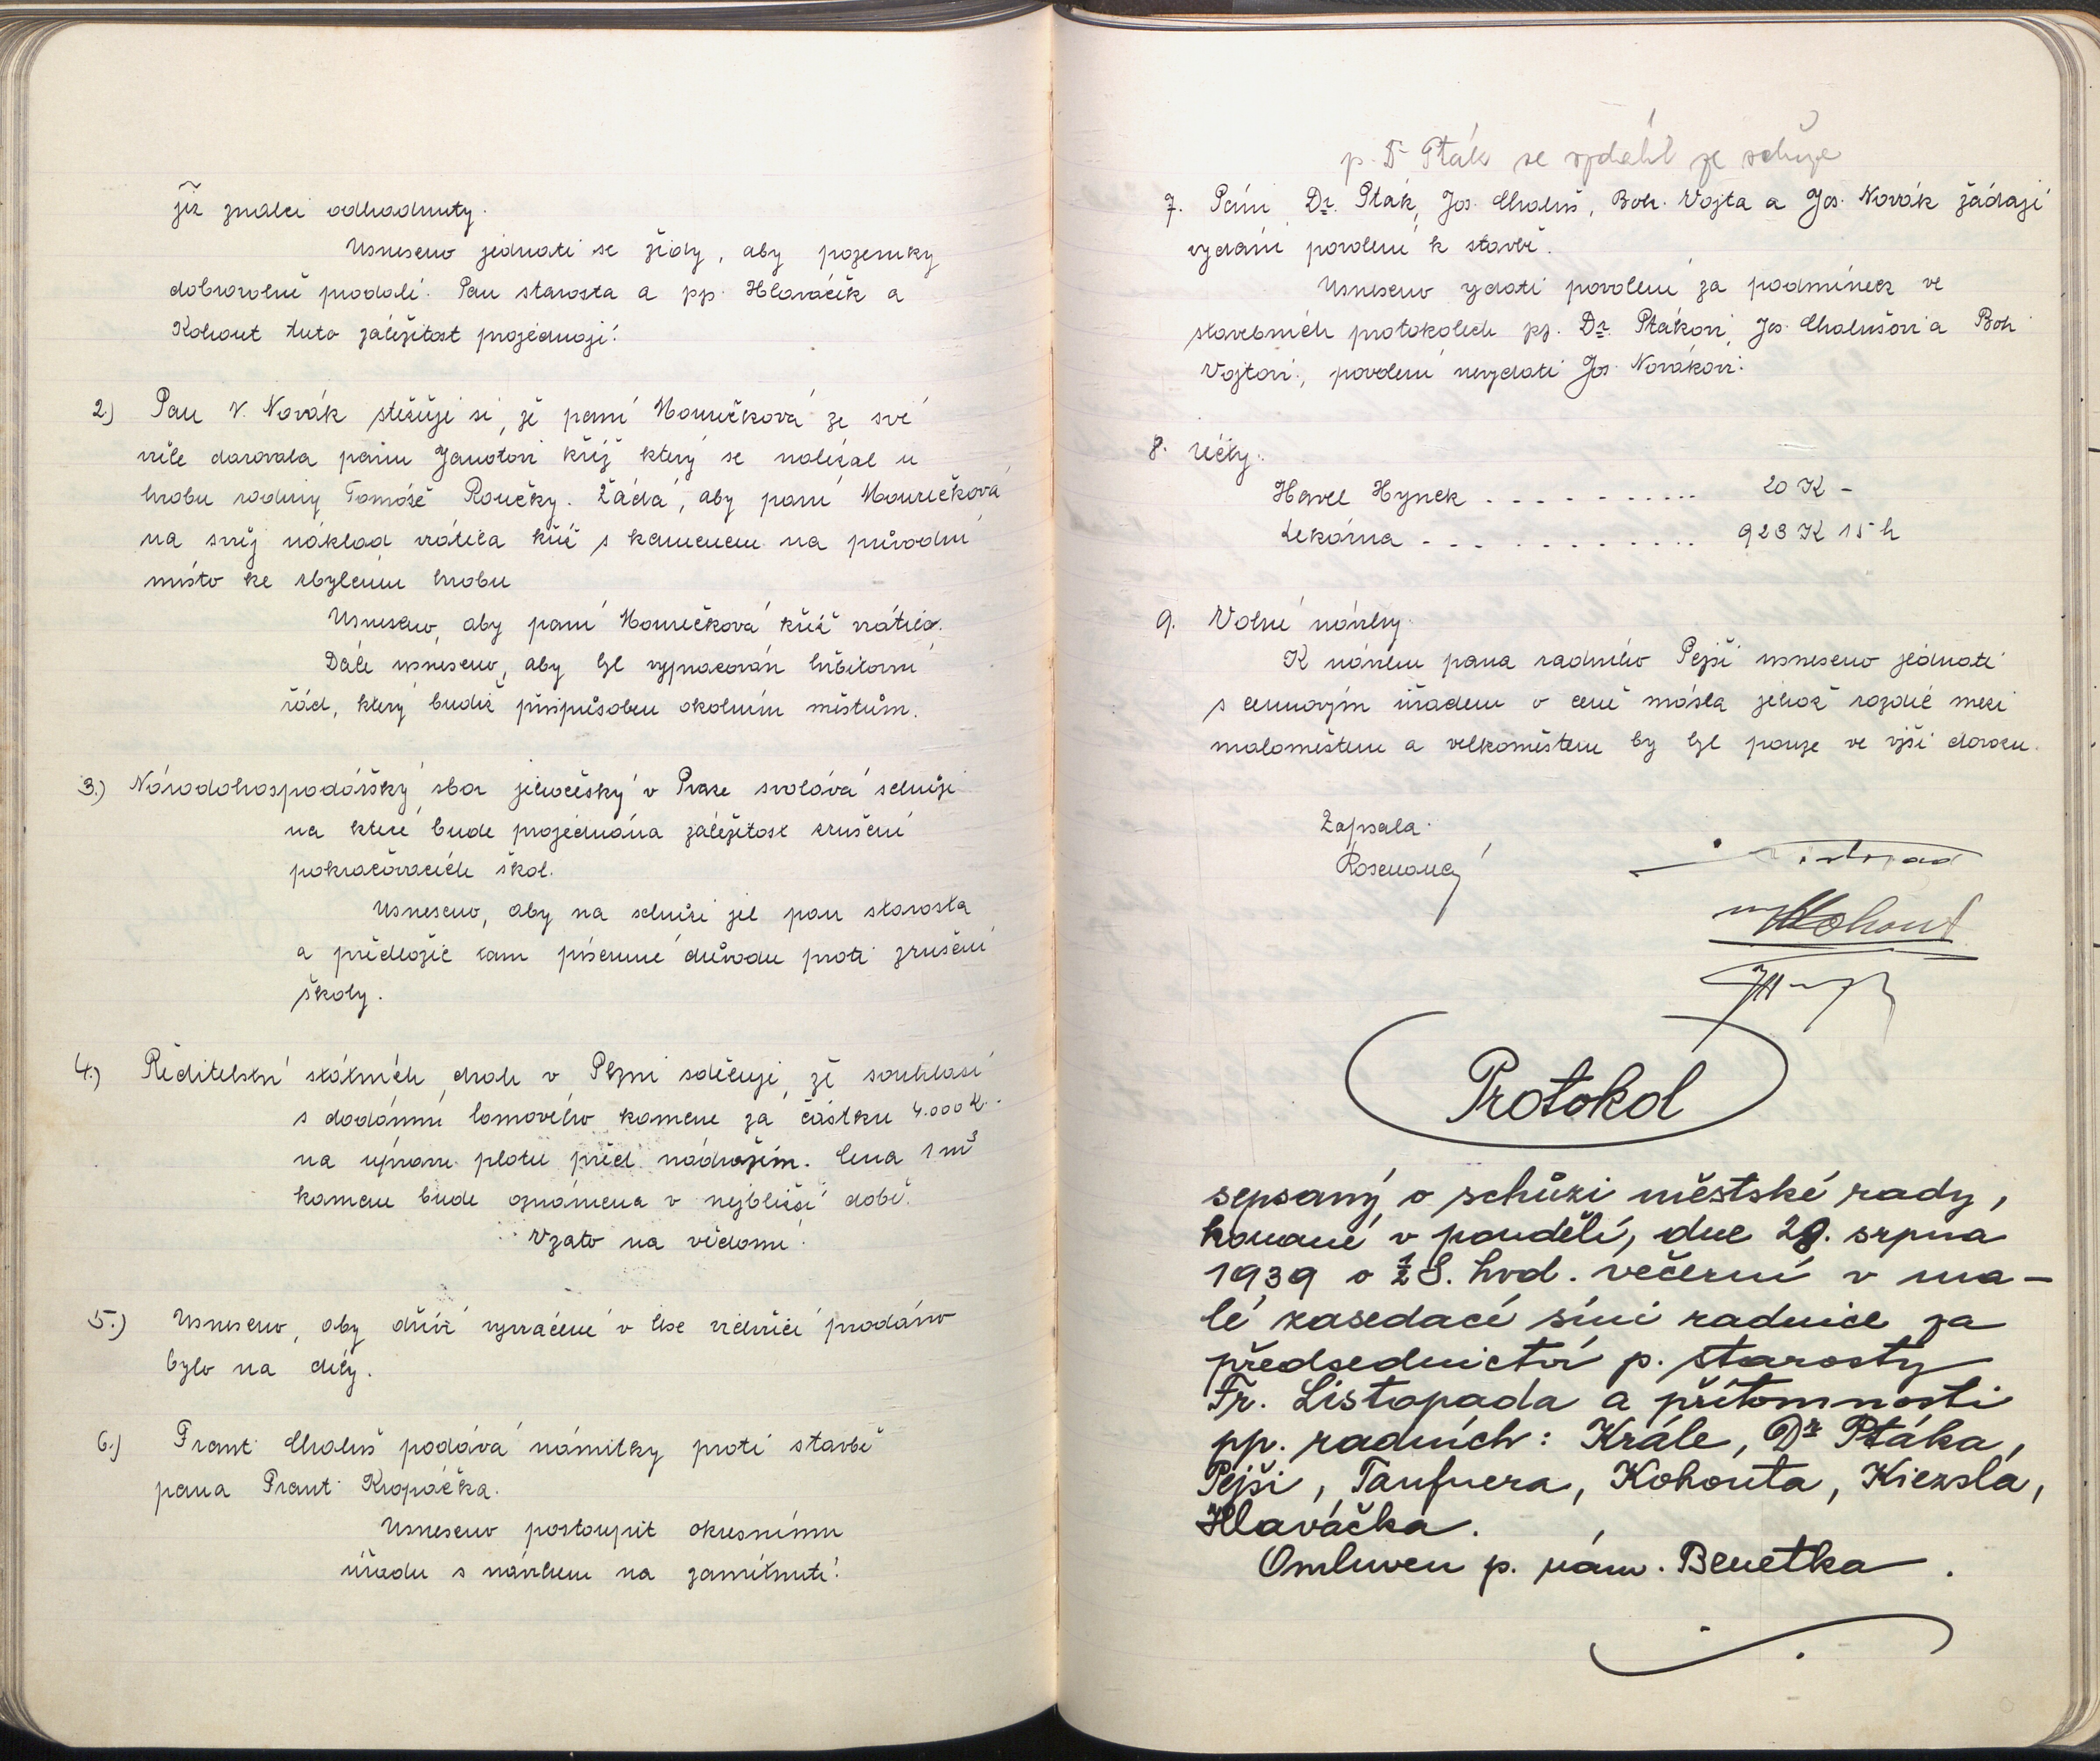 již znalci odhadnuty.
Usneseno jednati se židy, aby pozemky
dobrovolně prodali. Pan starosta a pp. Hlaváček a
Kohout tuto záležitost projednají.
2.) Pan V. Novák stěžuje si, že paní Houmečková ze své
vůle darovala panu Janotovi kříž který se nalézal u
hrobu rodiny Tomáše Roučky. Žádá, aby paní Houmečková
na svůj náklad vrátila kříž s kamenem na původní
místo ke zbylému hrobu
Usneseno, aby paní Houmečková kříž vrátila.
Dále usneseno, aby byl vypracován hřbitovní
řád, který budiž přizpůsoben okolním městům.
3.) Národohospodářský sbor jihočeský v Praze svolává schůzi
na které bude projednána záležitost zrušení
pokračovacích škol.
Usneseno, aby na schůzi jel pan starosta
a předložil tam písemné důvodu proti zrušení
školy.
4.) Ředitelství státních drah v Plzni sděluje, že souhlasí
s dodáním lomového kamene za částku 4.000 K.-
na úpravu plotu před nádražím. Cena 1 m³
kamene bude oznámena v nejbližší době.
Vzato na vědomí.
5.) Usneseno, aby dříví vyvrácené v lese prodáno
bylo na díly.
6.) Frant. Chaluš podává námitky proti stavbě
pana Frant. Kropáčka.
Usneseno postoupit okresnímu
úřadu s návrhem na zamítnutí.
p. Dr Pták se vzdálil ze schůze
7. Páni Dr. Pták, Jos. Chaluš, Boh. Vojta a Jos. Novák žádají
vydání povolení k stavbě.
Usneseno vydati povolení za podmínek ve
stavebních protokolech pp. Dr. Ptákovi, Jos. Chalušovi a Boh.
Vojtovi, povolení nevydati Jos. Novákovi.
8. účty.
Havel Hynek . . . . . . . . . . . 20 K -
Lekárna . . . . . . . . . . . . . 923 K 15 h
9. Volné návrhy.
K návrhu pana radního Pejši usneseno jednati
s cenovým úřadem o ceně másla jehož rozdíl mezi
maloměstem a velkoměstem by byl pouze ve výši dovozu.
Zapsala.
Rosenová
Listopad
Kohout
Protokol
sepsaný o schůzi městské rady,
konané v pondělí, dne 28. srpna
1939 o ½8. hod. večerní v ma-
lé zasedací síni radnice za
předsednictví p. starosty
Fr. Listopada a přítomnosti
pp. radních: Krále, Dr Ptáka,
Pejši, Taufnera, Kohouta, Kiezsla,
Hlaváčka.
Omluven p. nám. Benetka.